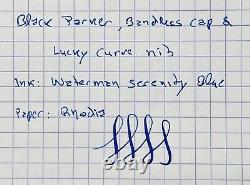 Black Parker, Bandless cap &
Lucky Curve nib
Ink: Waterman Serenity Blue
Paper: Rhodia